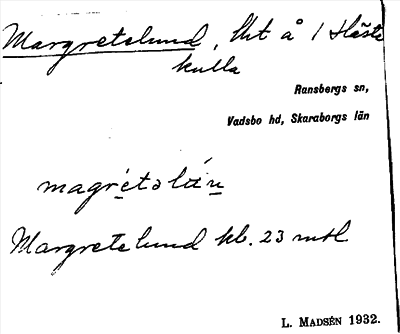 Margretelund, lht å 1 Häste
kulla
Ransbergs sn,
Vadsbo hd, Skaraborgs län
magrétəlún
Margretelund kb. 23 mtl
L. MADSÉN 1932.